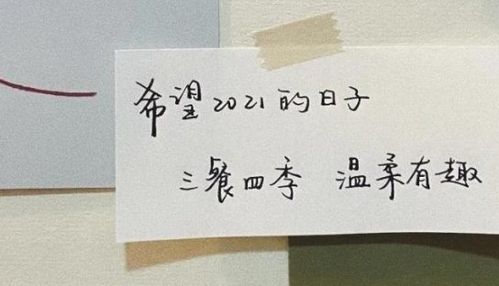 希望2021的日子
三餐四季 温柔有趣